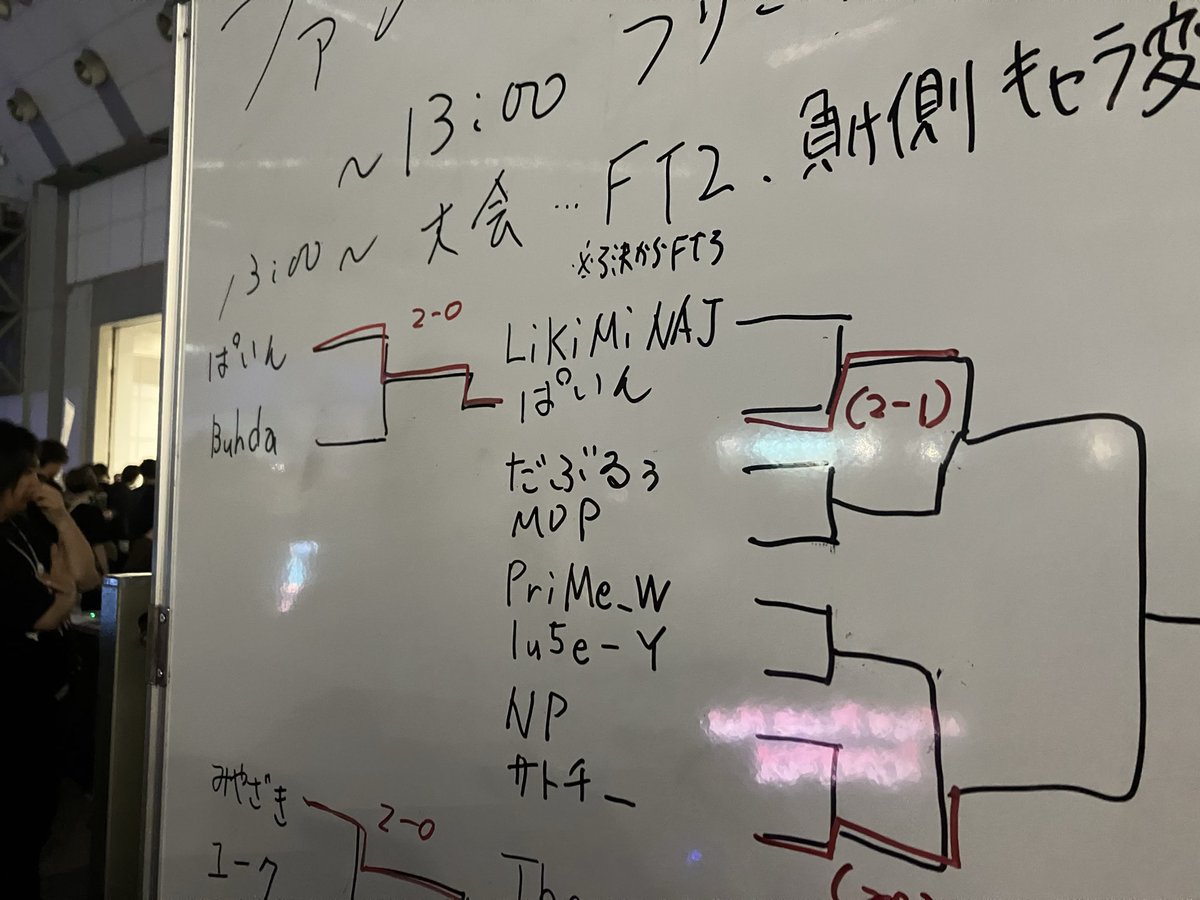 ~13:00
13:00~ 大会 … FT2. 負け側キャラ変
※準決からFT3
ぱいん
2-0
Buhda
LiKiMiNAJ
ぱいん
(2-1)
だぶるぅ
MOP
PriMe_W
lu5e-Y
NP
サトチ_
みやざき
2-0
ユーク